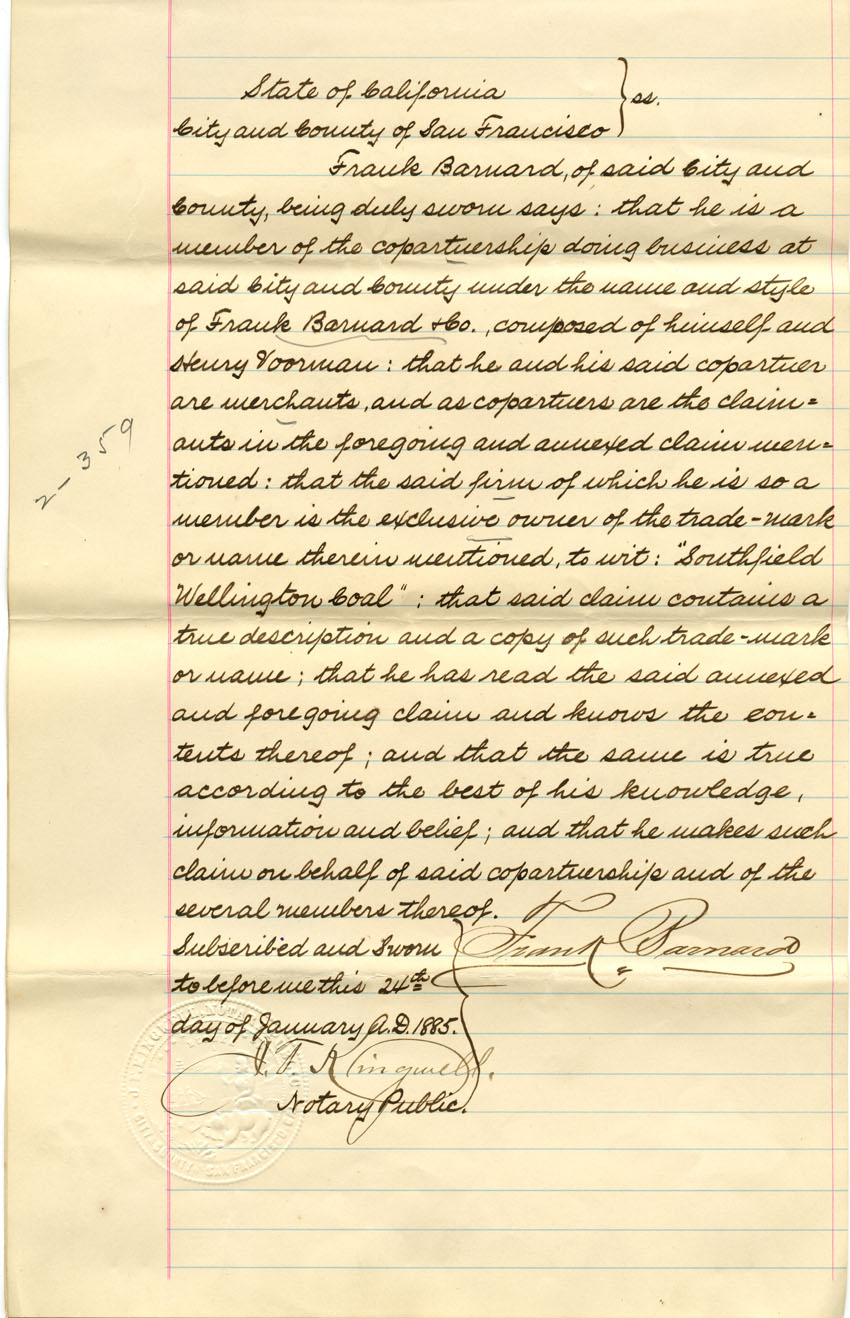 State of California } ss.
City and County of San Francisco
Frank Barnard, of said City and
County, being duly sworn says: that he is a
member of the copartnership doing business at
said City and County under the name and style
of Frank Barnard & Co., composed of himself and
Henry Voorman: that he and his said copartner
are merchants, and as copartners are the claim=
ants in the foregoing and annexed claim men=
tioned: that the said firm of which he is so a
member is the exclusive owner of the trade-mark
or name therein mentioned, to wit: "Southfield
Wellington Coal": that said claim contains a
true description and a copy of such trade-mark
or name; that he has read the said annexed
and foregoing claim and knows the con=
tents thereof; and that the same is true
according to the best of his knowledge,
information and belief; and that he makes such
claim on behalf of said copartnership and of the
several members thereof.
Subscribed and Sworn
to before me this 24th
day of January A.D. 1885.
Frank Barnard
J. F. Kingwell.
Notary Public.
2-359